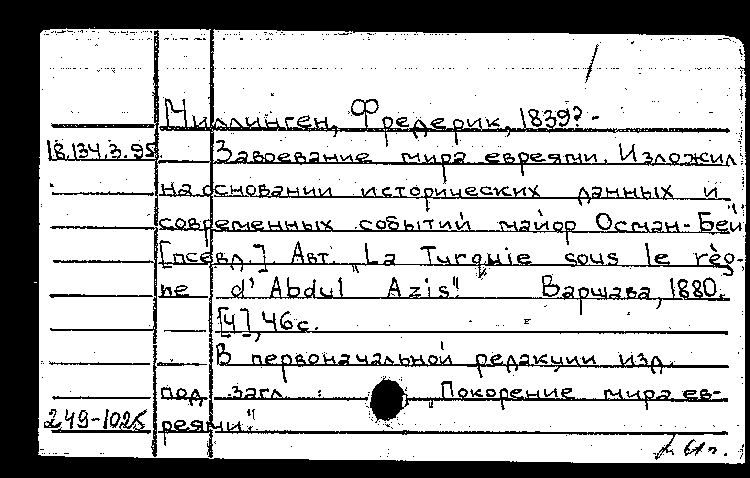 Миллинген, Фредерик, 1839? -
18.134.3.95 Завоевание мира евреями. Изложил
на основании исторических данных и
современных событий майор Осман-Бей
[псевд.]. Авт. „La Turquie sous le règ-
ne d'Abdul Azis". Варшава, 1880.
[4], 46 с.
В первоначальной редакции изд.
под загл. : „Покорение мира ев-
249-1025 реями".